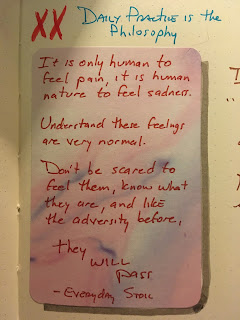 XX DAILY PRACTICE IS THE
PHILOSOPHY
It is only human to
feel pain, it is human
nature to feel sadness.
Understand these feelings
are very normal.
Don't be scared to
feel them, know what
they are, and like
the adversity before,
they
WILL
pass
- Everyday Stoic